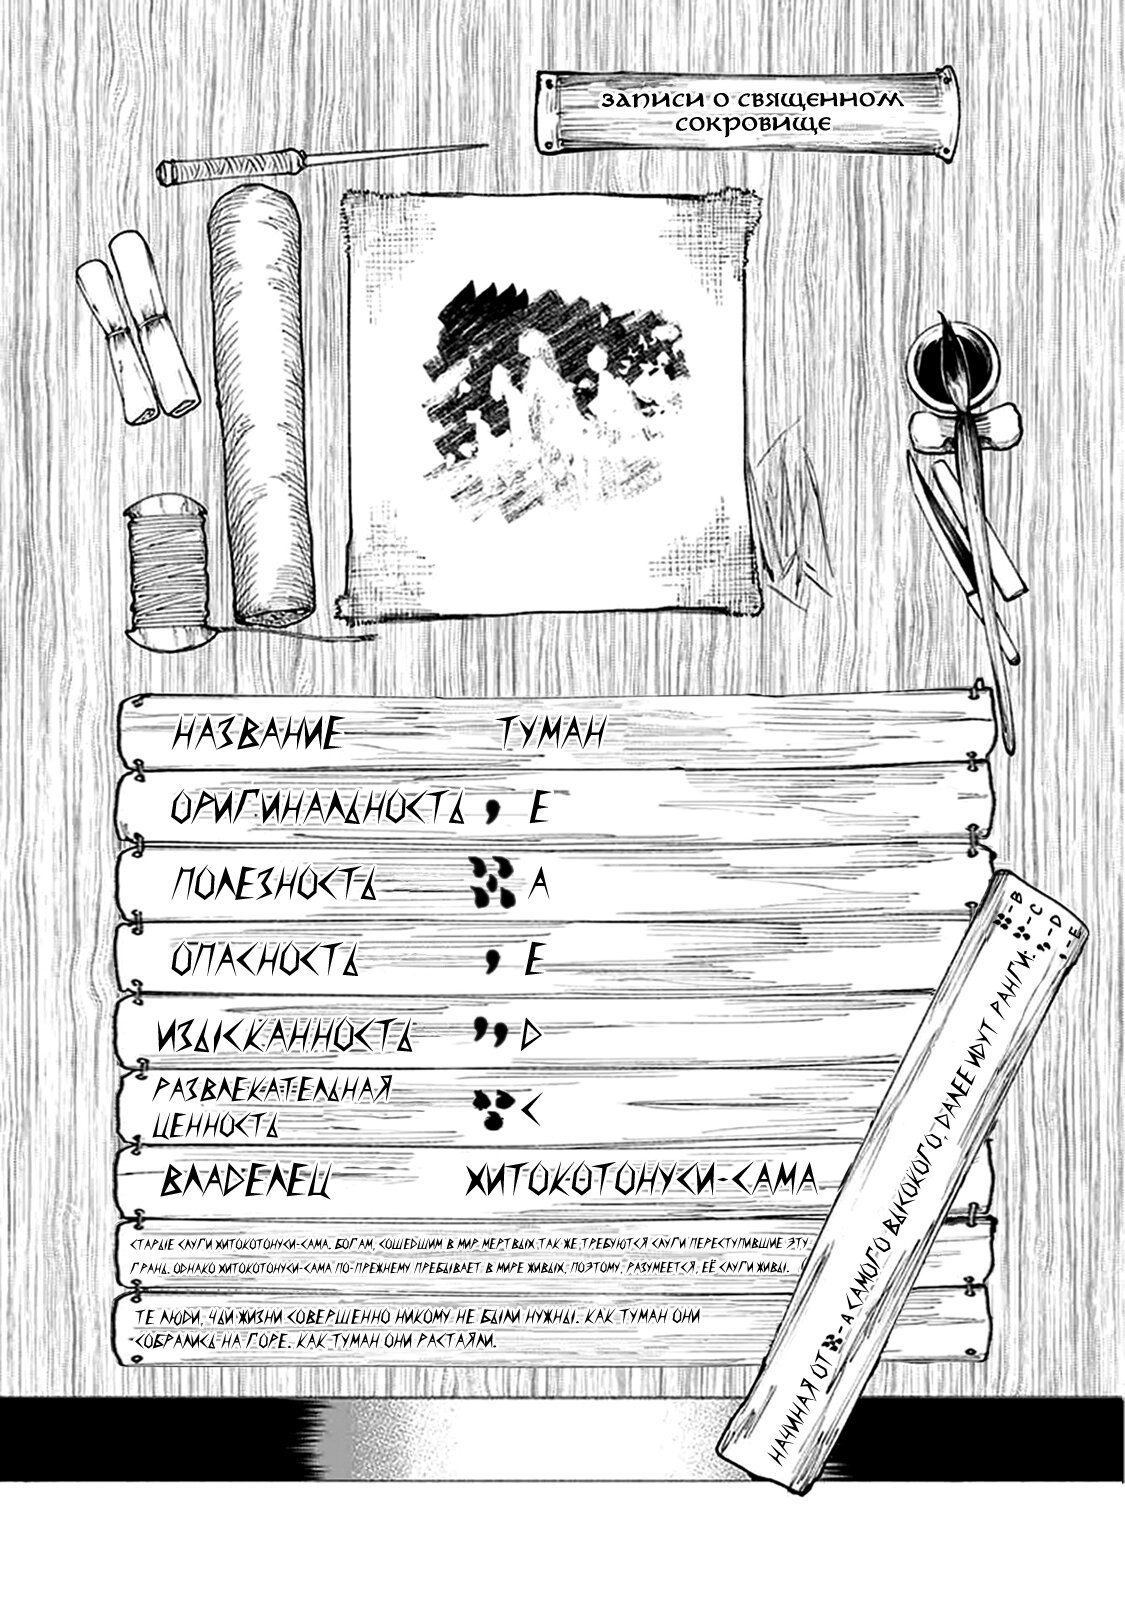 ЗАПИСИ О СВЯЩЕННОМ
СОКРОВИЩЕ
НАЗВАНИЕ ТУМАН
ОРИГИНАЛЬНОСТЬ E
ПОЛЕЗНОСТЬ A
ОПАСНОСТЬ E
ИЗЫСКАННОСТЬ D
РАЗВЛЕКАТЕЛЬНАЯ
ЦЕННОСТЬ C
ВЛАДЕЛЕЦ ХИТОКОТОНУСИ-САМА
СТАРЫЕ СЛУГИ ХИТОКОТОНУСИ-САМА. БОГАМ, СОШЕДШИМ В МИР МЕРТВЫХ ТАК ЖЕ ТРЕБУЮТСЯ СЛУГИ ПЕРЕСТУПИВШИЕ ЭТУ
ГРАНЬ. ОДНАКО ХИТОКОТОНУСИ-САМА ПО-ПРЕЖНЕМУ ПРЕБЫВАЕТ В МИРЕ ЖИВЫХ, ПОЭТОМУ, РАЗУМЕЕТСЯ, ЕЁ СЛУГИ ЖИВЫ.
ТЕ ЛЮДИ, ЧЬИ ЖИЗНИ СОВЕРШЕННО НИКОМУ НЕ БЫЛИ НУЖНЫ. КАК ТУМАН ОНИ
СОБРАЛИСЬ НА ГОРЕ. КАК ТУМАН ОНИ РАСТАЯЛИ.
НАЧИНАЯ ОТ -A САМОГО ВЫСОКОГО, ДАЛЕЕ ИДУТ РАНГИ:
-B
-C
-D
-E